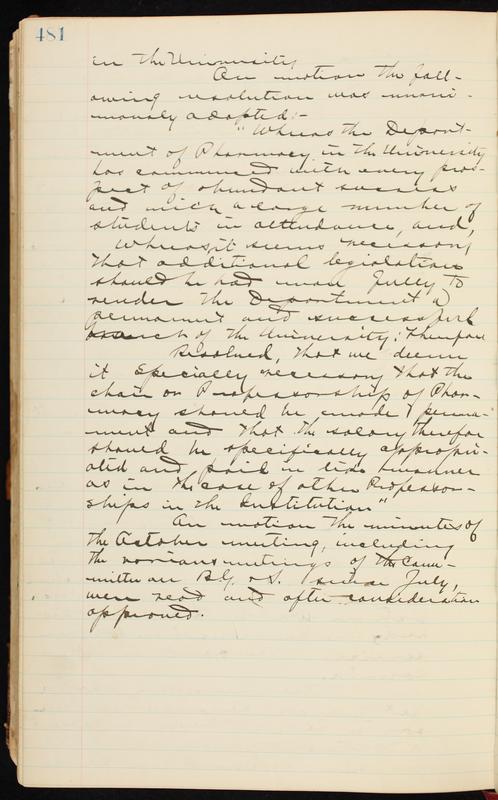 481
in the University
On motion the foll-
owing resolution was unani-
mously adopted:-
"Whereas the Depart-
ment of Pharmacy in the University
has commenced with every pros-
pect of abundant success
and with a large number of
students in attendance, and,
Whereas, it seems necessary
that additional legislation
should be had more fully to
render the Department a
permanent and successful
branch of the University; therefore
Resolved, that we deem
it specially necessary that the
chair or Professorship of Phar-
macy should be made perma-
nent and that the salary therefor
should be specifically appropri-
ated and paid in like manner
as in the case of other Professor-
ships in the Institution"
On motion the minutes of
the October meeting, including
the various meetings of the Com-
mittee on B.G. & S. since July,
were read and after consideration
approved.